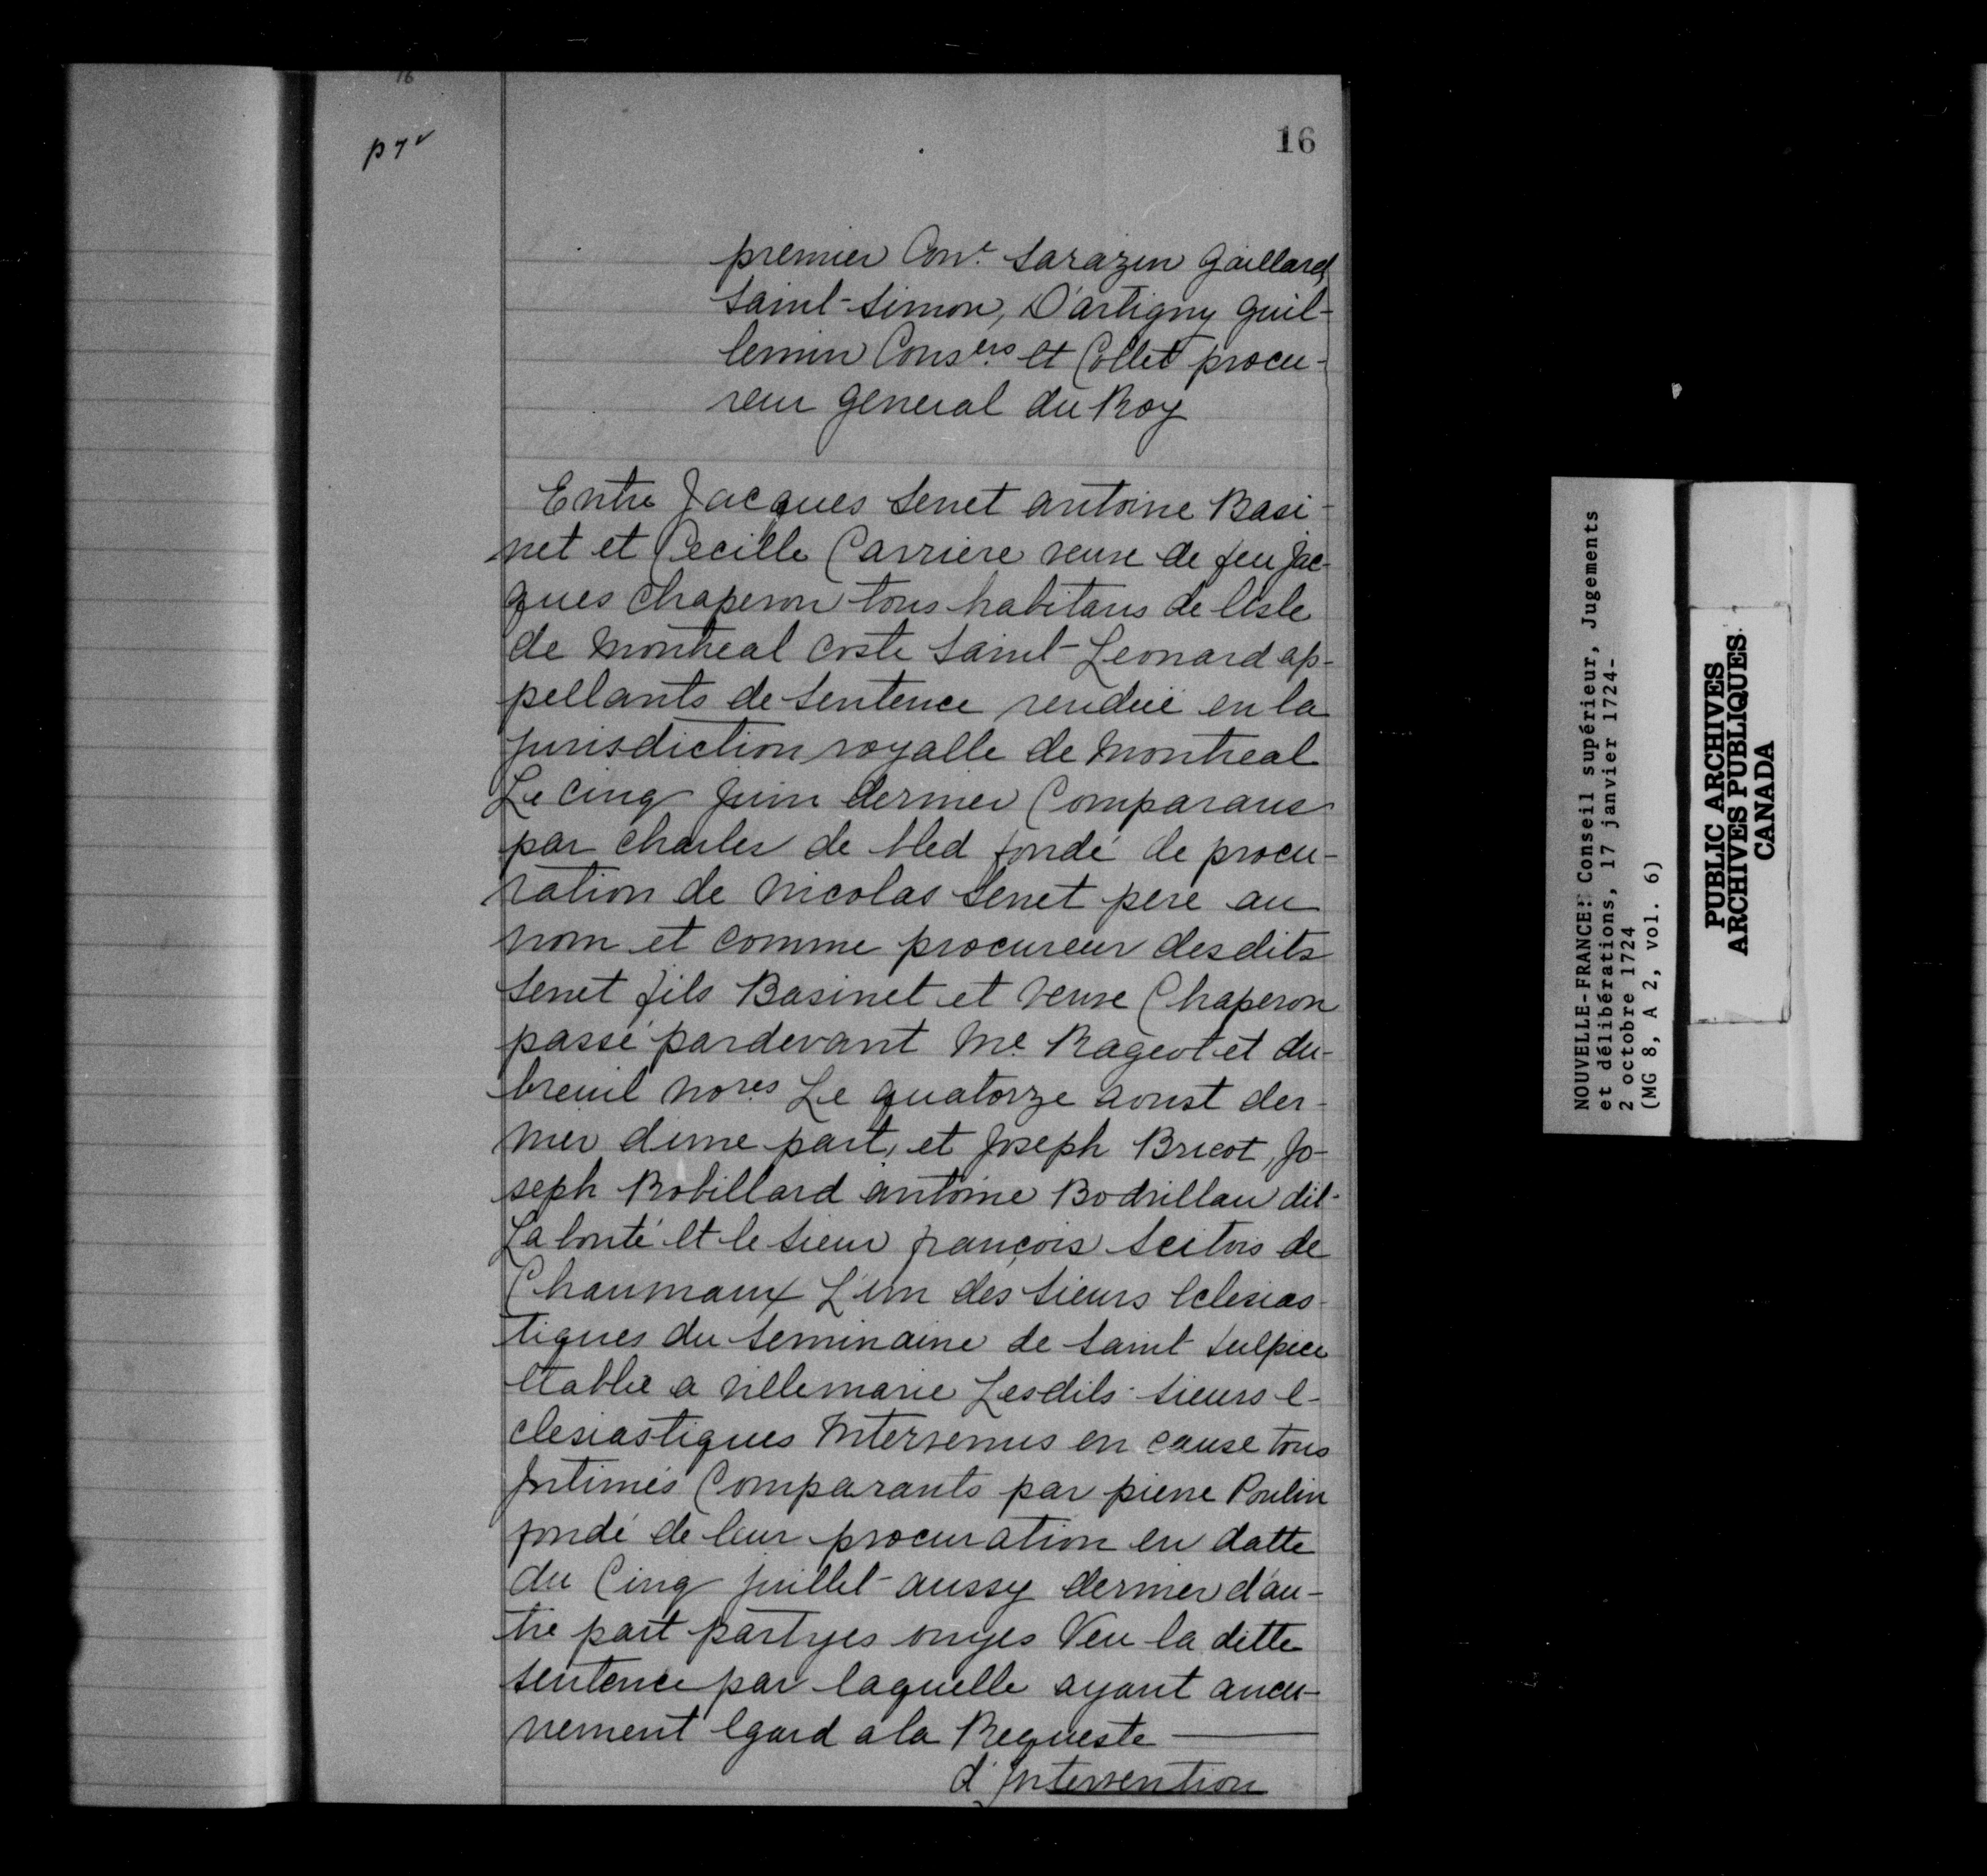 16
p 7 v
16
premier Con.r Sarazin Gaillard,
Saint-Simon, D'artigny Guil-
lemin Cons.ers et Collet procu-
reur general du Roy
Entre Jacques Senet antoine Basi-
net et Cecille Carriere veuve de feu Jac-
ques Chaperon tous habitans de lisle
de Montreal coste Saint-Leonard ap-
pellants de Sentence rendüe en la
Jurisdiction royalle de Montreal
Le Cinq Juin dernier Comparans
par Charles de Med fondé de procu-
ration de Nicolas Senet pere au
nom et comme procureur desdits
Senet fils Basinet et veuve Chaperon
passé pardevant Me. Rageot et du-
breuil no.res Le quatorze aoust der-
nier d'une part, et Joseph Bricot, Jo-
seph Robillard antoine Bodrillau dit
La bonté Et le Sieur françois Seitois de
Chaumaux L'un des Sieurs Eclesias-
tiques du Seminaire de Saint Sulpice
Etablie a villemarie Lesdits Sieurs E-
clesiastiques Intervenus en cause tous
Intimés Comparants par pierre Poulin
fondé de leur procuration en datte
du Cinq Juillet aussy dernier d'au-
tre part partyes ouyes Veu la ditte
Sentence par laquelle ayant aucu-
nement Egard a la Requeste
d'Intervention
NOUVELLE-FRANCE: Conseil supérieur, Jugements
et délibérations, 17 janvier 1724-
2 octobre 1724
(MG 8, A 2, vol. 6)
PUBLIC ARCHIVES
ARCHIVES PUBLIQUES
CANADA